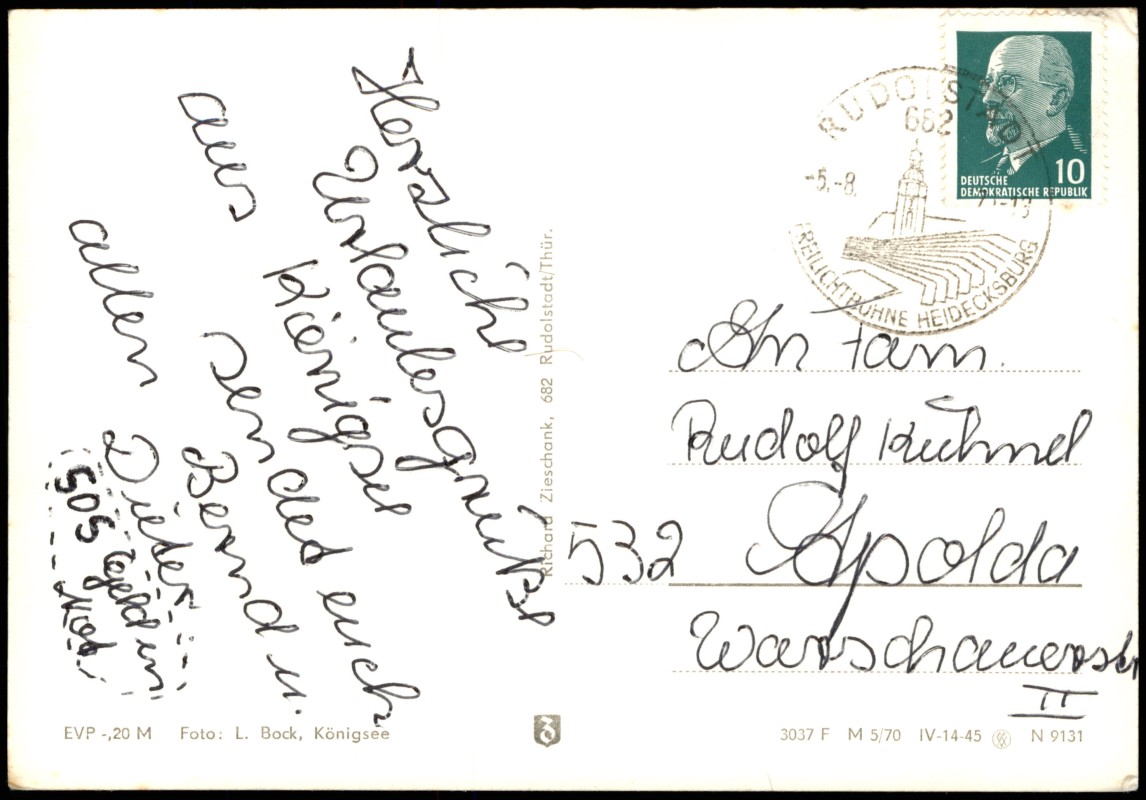 Herzliche
Urlaubsgrüße
aus Königsee
sendet euch
allen Bernd u.
Dieter
SOS
in
Not
Richard Zieschank, 682 Rudolstadt/Thür.
RUDOLSTADT
682
-5.-8.
71-13
FREILICHTBÜHNE HEIDECKSBURG
10
DEUTSCHE
DEMOKRATISCHE REPUBLIK
An Fam.
Rudolf Kühnel
532 Apolda
Warschauerstr
II
EVP -,20 M Foto: L. Bock, Königsee
3037 F M 5/70 IV-14-45 N 9131